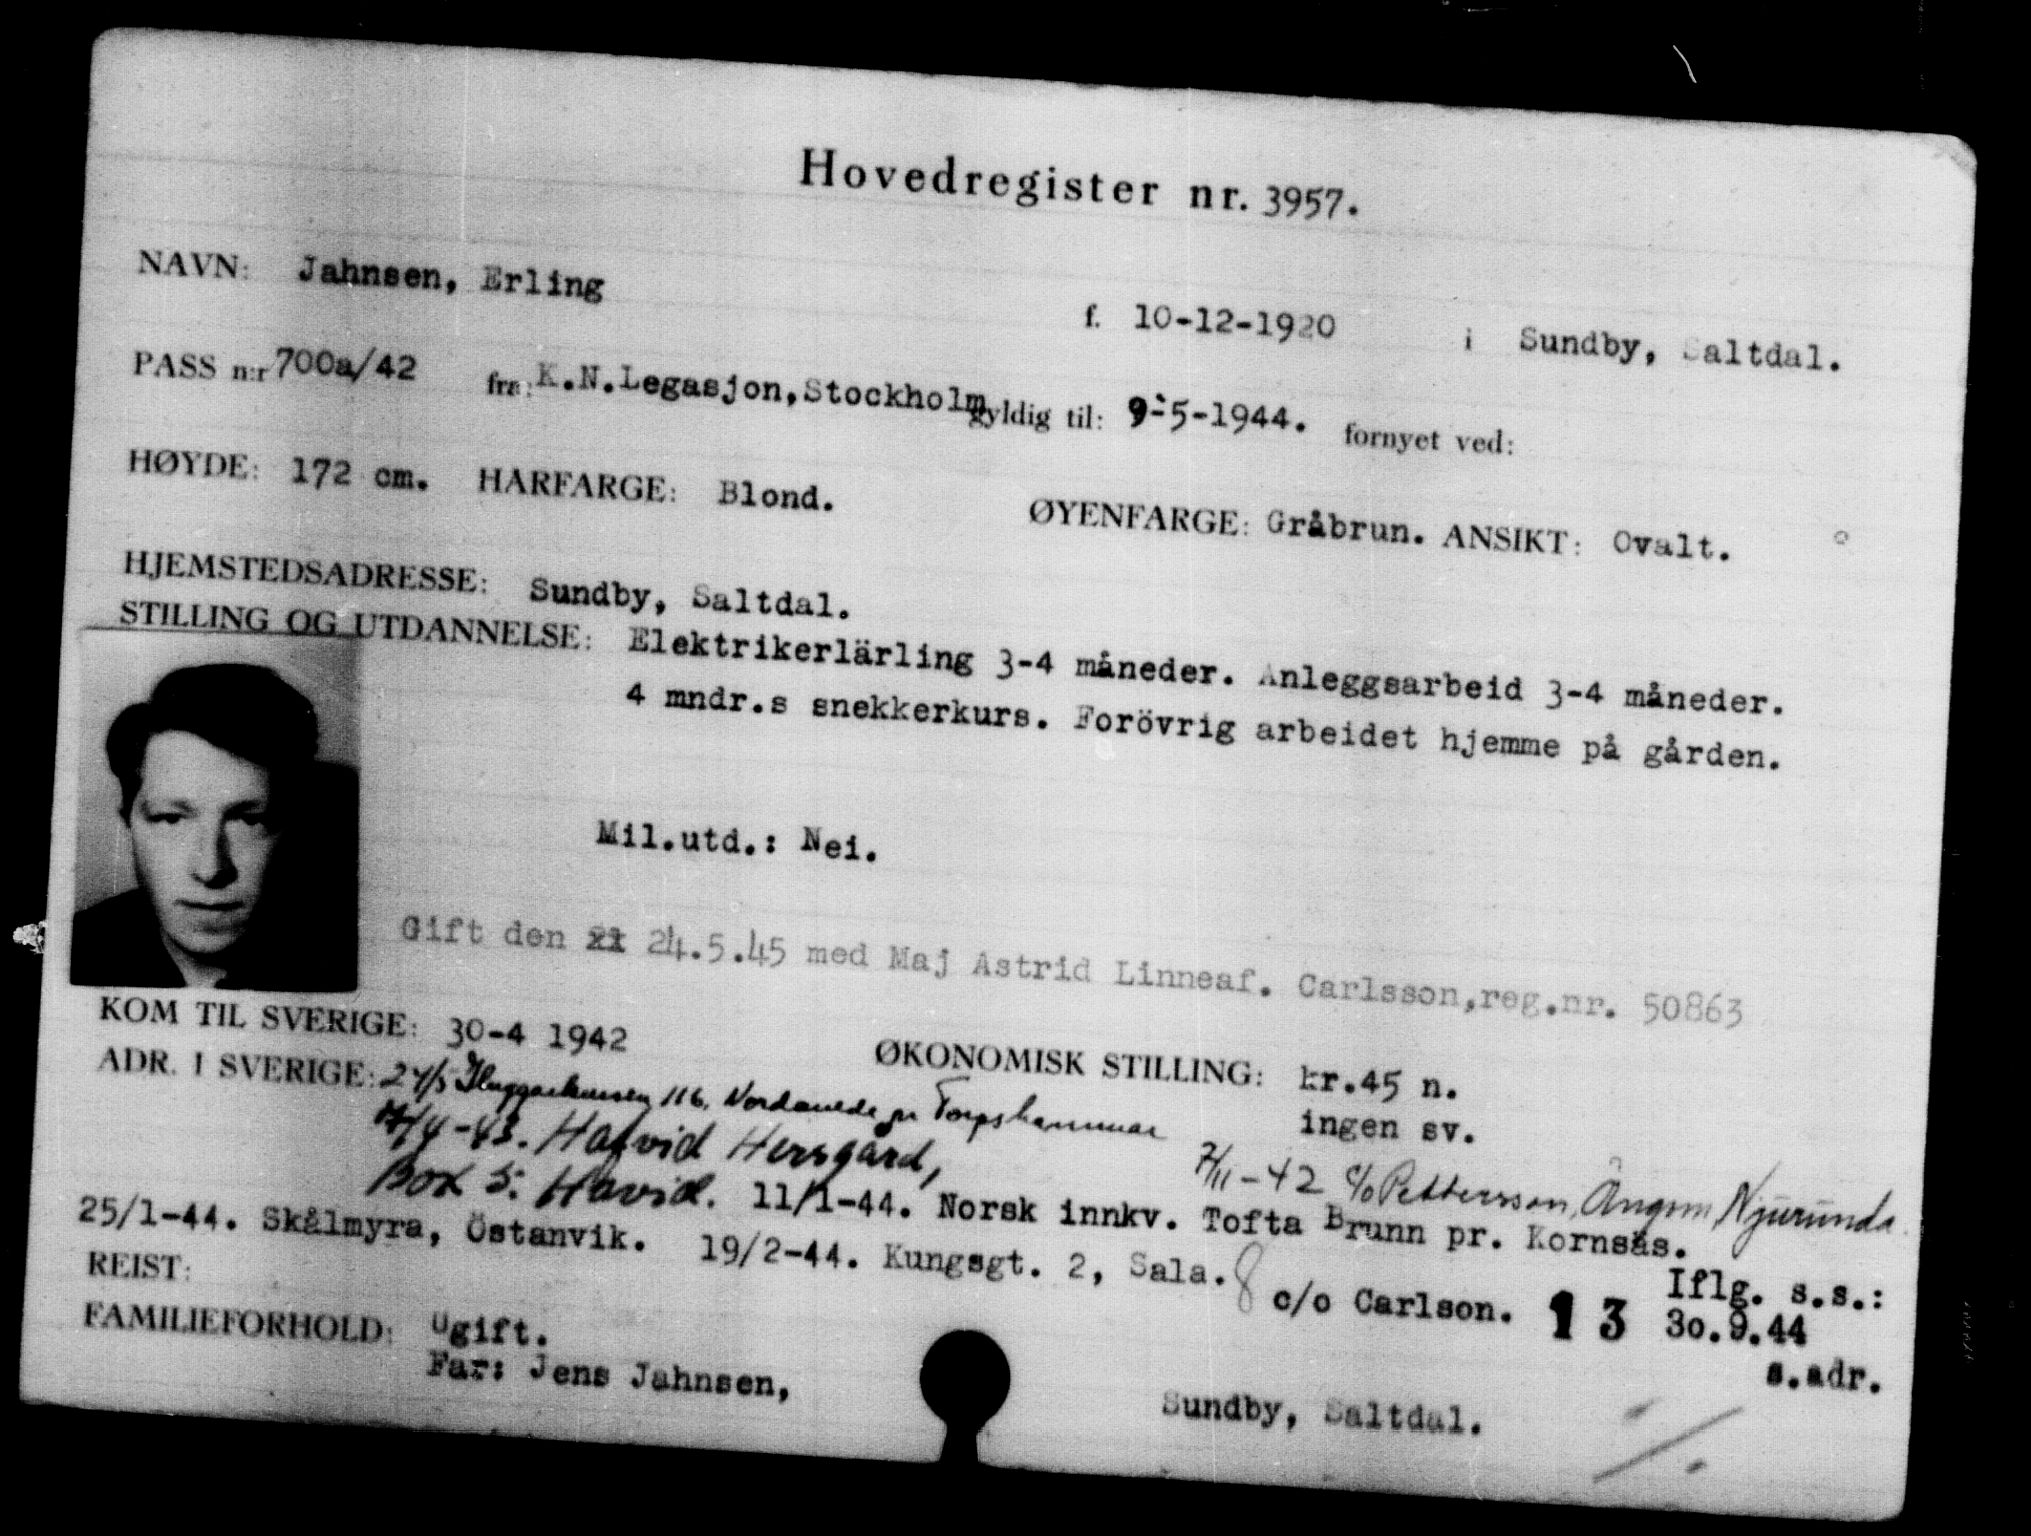 Hovedregister nr. 3957.
NAVN: Jahnsen, Erling
f. 10-12-1920 i Sundby, Saltdal.
PASS n:r 700a/42 fra: K.N.Legasjon,Stockholm gyldig til: 9-5-1944. fornyet ved:
HØYDE: 172 cm. HARFARGE: Blond. ØYENFARGE: Gråbrun. ANSIKT: Ovalt.
HJEMSTEDSADRESSE: Sundby, Saltdal.
STILLING OG UTDANNELSE: Elektrikerlärling 3-4 måneder. Anleggsarbeid 3-4 måneder.
4 mndr.s snekkerkurs. Forövrig arbeidet hjemme på gården.
Mil.utd.: Nei.
Gift den 24.5.45 med Maj Astrid Linneaf. Carlsson,reg.nr. 50863
KOM TIL SVERIGE: 30-4 1942
ØKONOMISK STILLING: kr.45 n.
ingen sv.
ADR. I SVERIGE: 116, pr Torpshammar
Box 5. 7/11-42 c/o Pettersson, Njurunda
11/1-44. Norsk innkv. Tofta Brunn pr. Kornsäs.
25/1-44. Skålmyra, Östanvik. 19/2-44. Kungsgt. 2, Sala. 8 c/o Carlson. 13
Iflg. s.s.:
30.9.44
s.adr.
REIST:
FAMILIEFORHOLD: Ugift.
Far: Jens Jahnsen, Sundby, Saltdal.